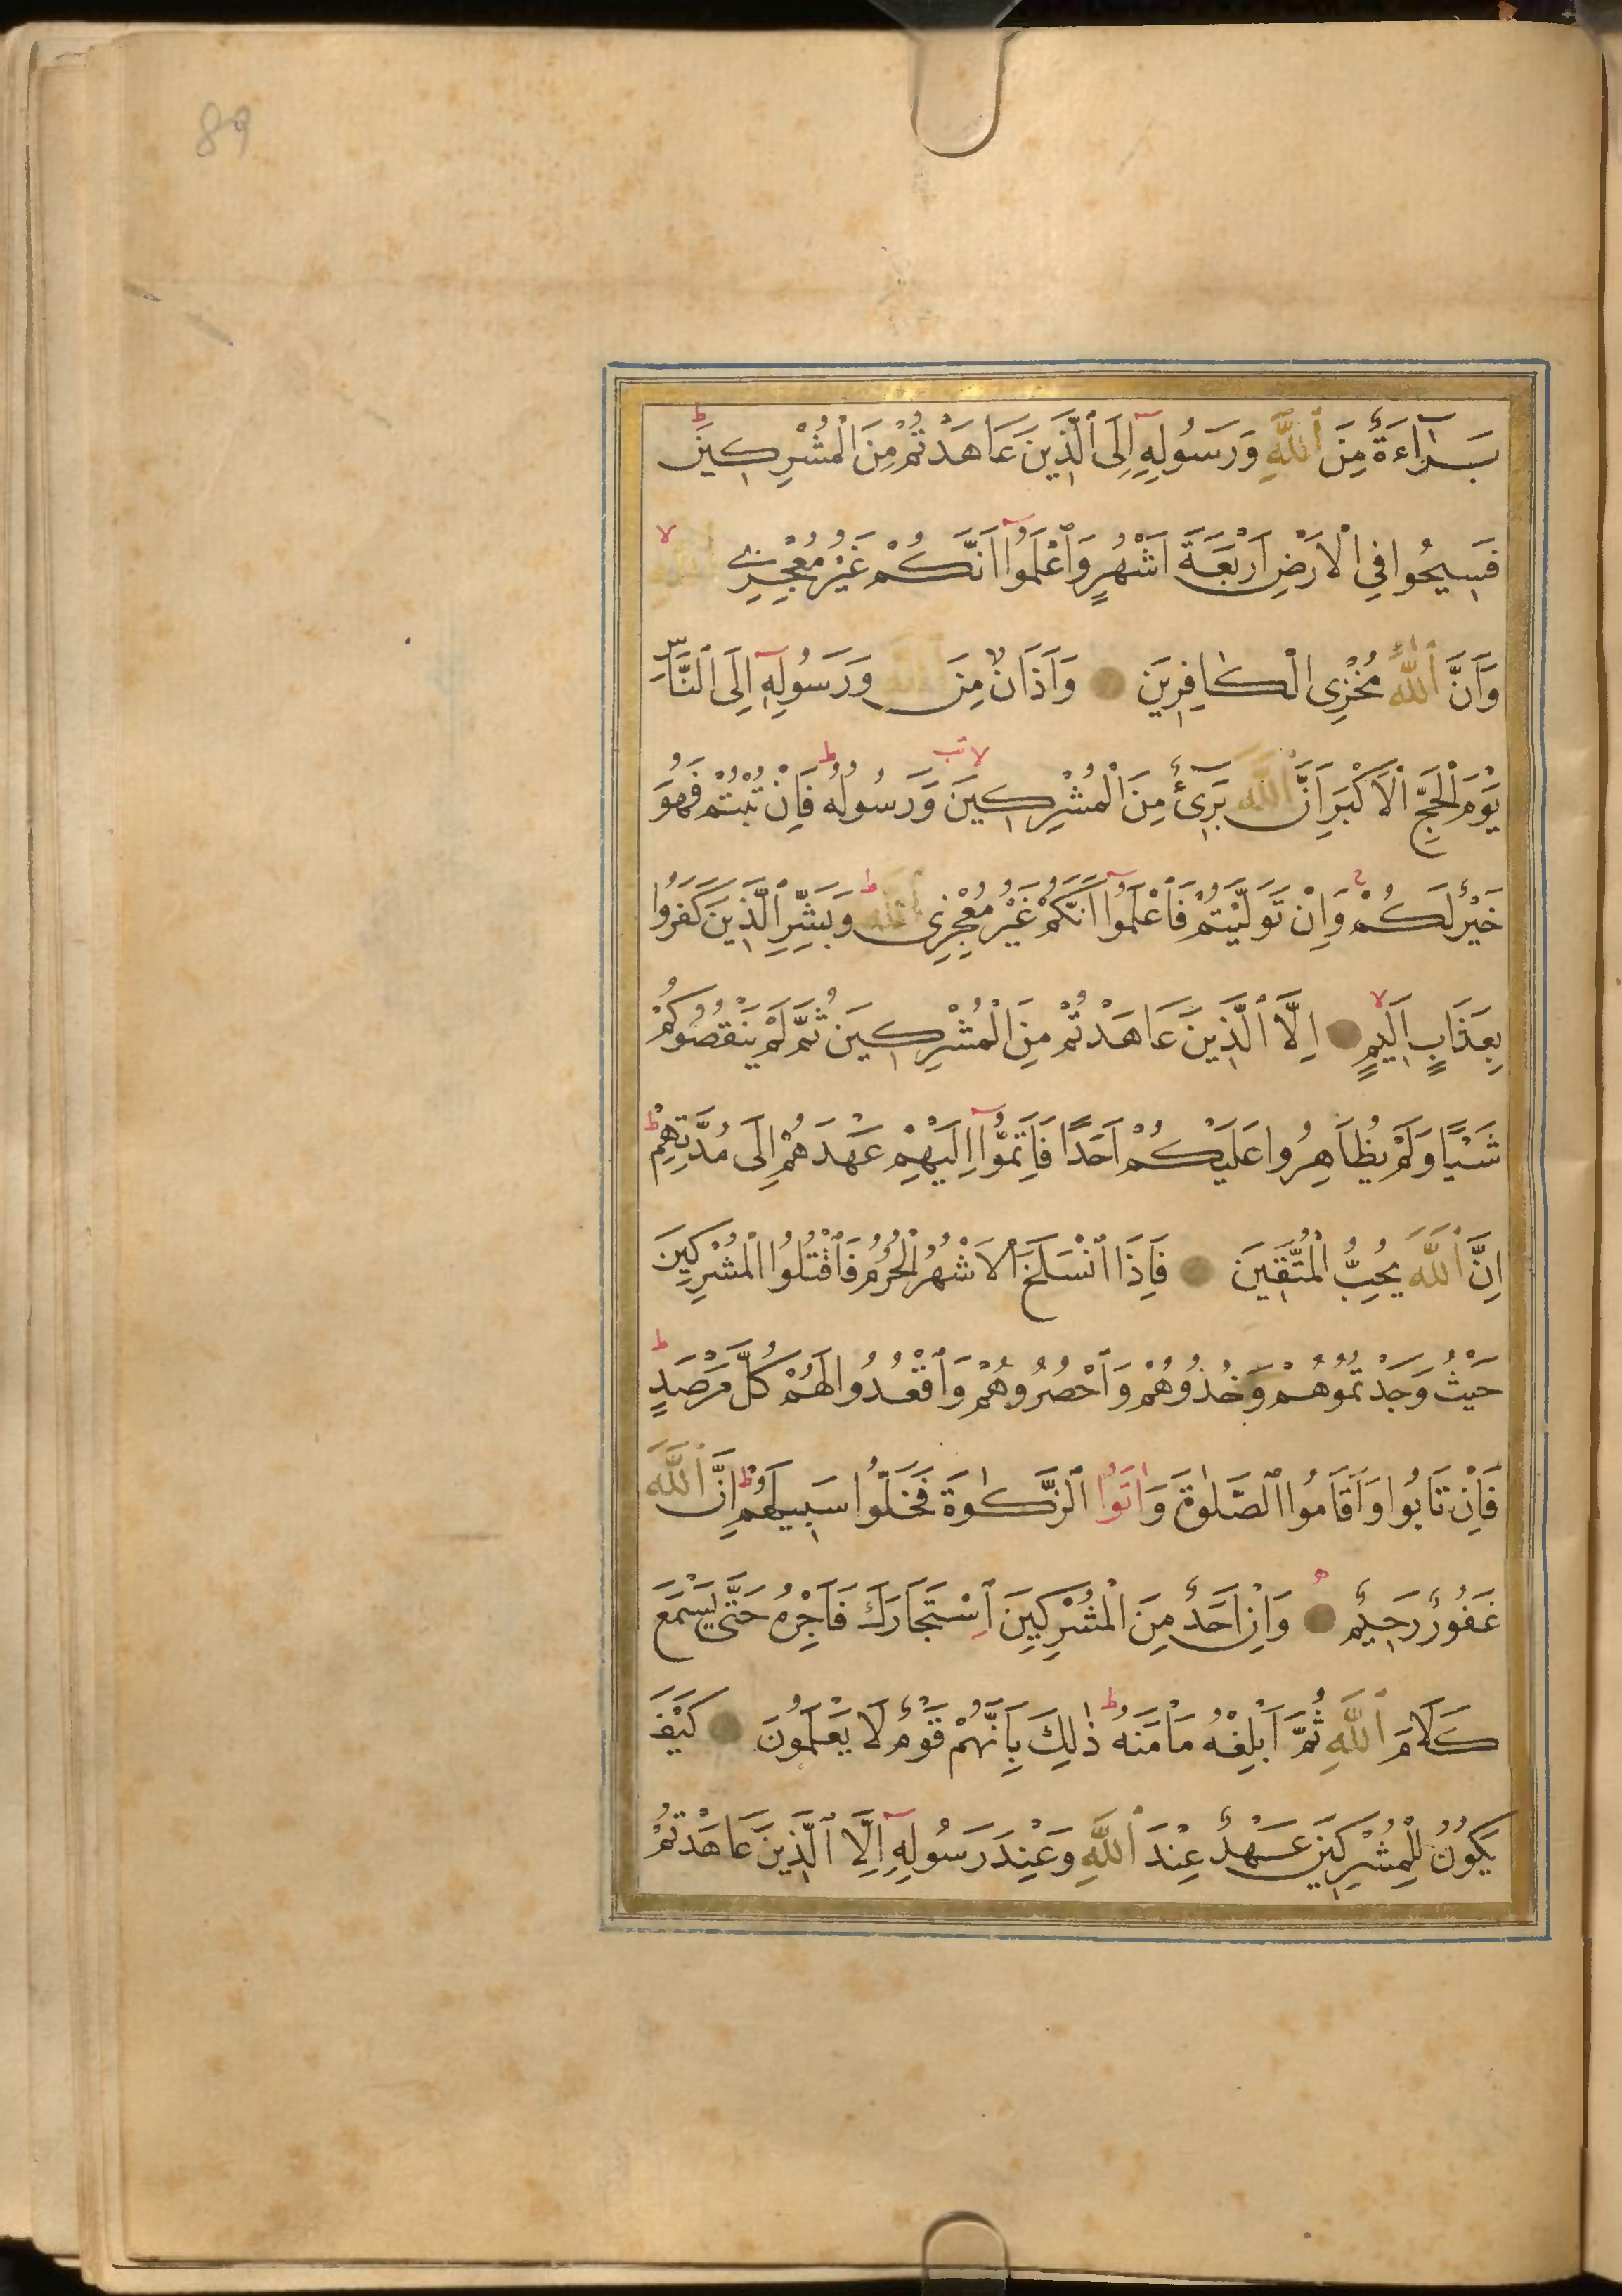 89
بَرَآءَةٌ مِنَ ٱللّٰهِ وَرَسُولِهِٓ اِلَى ٱلَّذِينَ عَاهَدْتُمْ مِنَ الْمُشْرِكِينَ ط
فَسِيحُوا فِي الْاَرْضِ اَرْبَعَةَ اَشْهُرٍ وَٱعْلَمُوٓا اَنَّكُمْ غَيْرُ مُعْجِزِي اللّٰهِ لا
وَاَنَّ ٱللّٰهَ مُخْزِى الْكَافِرِينَ وَاَذَانٌ مِنَ اللّٰهِ وَرَسُولِهِٓ اِلَى ٱلنَّاسِ
يَوْمَ الْحَجِّ ٱلْاَكْبَرِ اَنَّ ٱللّٰهَ بَرِيٓءٌ مِنَ الْمُشْرِكِينَ لا وَرَسُولُهُ ط فَاِنْ تُبْتُمْ فَهُوَ
خَيْرٌ لَكُمْ وَاِنْ تَوَلَّيْتُمْ فَٱعْلَمُوٓا اَنَّكُمْ غَيْرُ مُعْجِزِى ٱللّٰهِ ط وَبَشِّرِ ٱلَّذِينَ كَفَرُوا
بِعَذَابٍ اَلِيمٍ لا اِلَّا ٱلَّذِينَ عَاهَدْتُمْ مِنَ الْمُشْرِكِينَ ثُمَّ لَمْ يَنْقُصُوكُمْ
شَيْـًٔا وَلَمْ يُظَاهِرُوا عَلَيْكُمْ اَحَدًا فَاَتِمُّوٓا اِلَيْهِمْ عَهْدَهُمْ اِلَى مُدَّتِهِمْ ط
اِنَّ ٱللّٰهَ يُحِبُّ الْمُتَّقِينَ فَاِذَا ٱنْسَلَخَ ٱلْاَشْهُرُ الْحُرُمُ فَٱقْتُلُوا الْمُشْرِكِينَ
حَيْثُ وَجَدْتُمُوهُمْ وَخُذُوهُمْ وَٱحْصُرُوهُمْ وَٱقْعُدُوا لَهُمْ كُلَّ مَرْصَدٍ ط
فَاِنْ تَابُوا وَاَقَامُوا ٱلصَّلٰوةَ وَاٰتَوُا ٱلزَّكٰوةَ فَخَلُّوا سَبِيلَهُمْ ط اِنَّ ٱللّٰهَ
غَفُورٌ رَحِيمٌ وَاِنْ اَحَدٌ مِنَ الْمُشْرِكِينَ ٱسْتَجَارَكَ فَاَجِرْهُ حَتَّى يَسْمَعَ
كَلَامَ ٱللّٰهِ ثُمَّ اَبْلِغْهُ مَاْمَنَهُ ط ذٰلِكَ بِاَنَّهُمْ قَوْمٌ لَا يَعْلَمُونَ كَيْفَ
يَكُونُ لِلْمُشْرِكِينَ عَهْدٌ عِنْدَ ٱللّٰهِ وَعِنْدَ رَسُولِهِٓ اِلَّا ٱلَّذِينَ عَاهَدْتُمْ